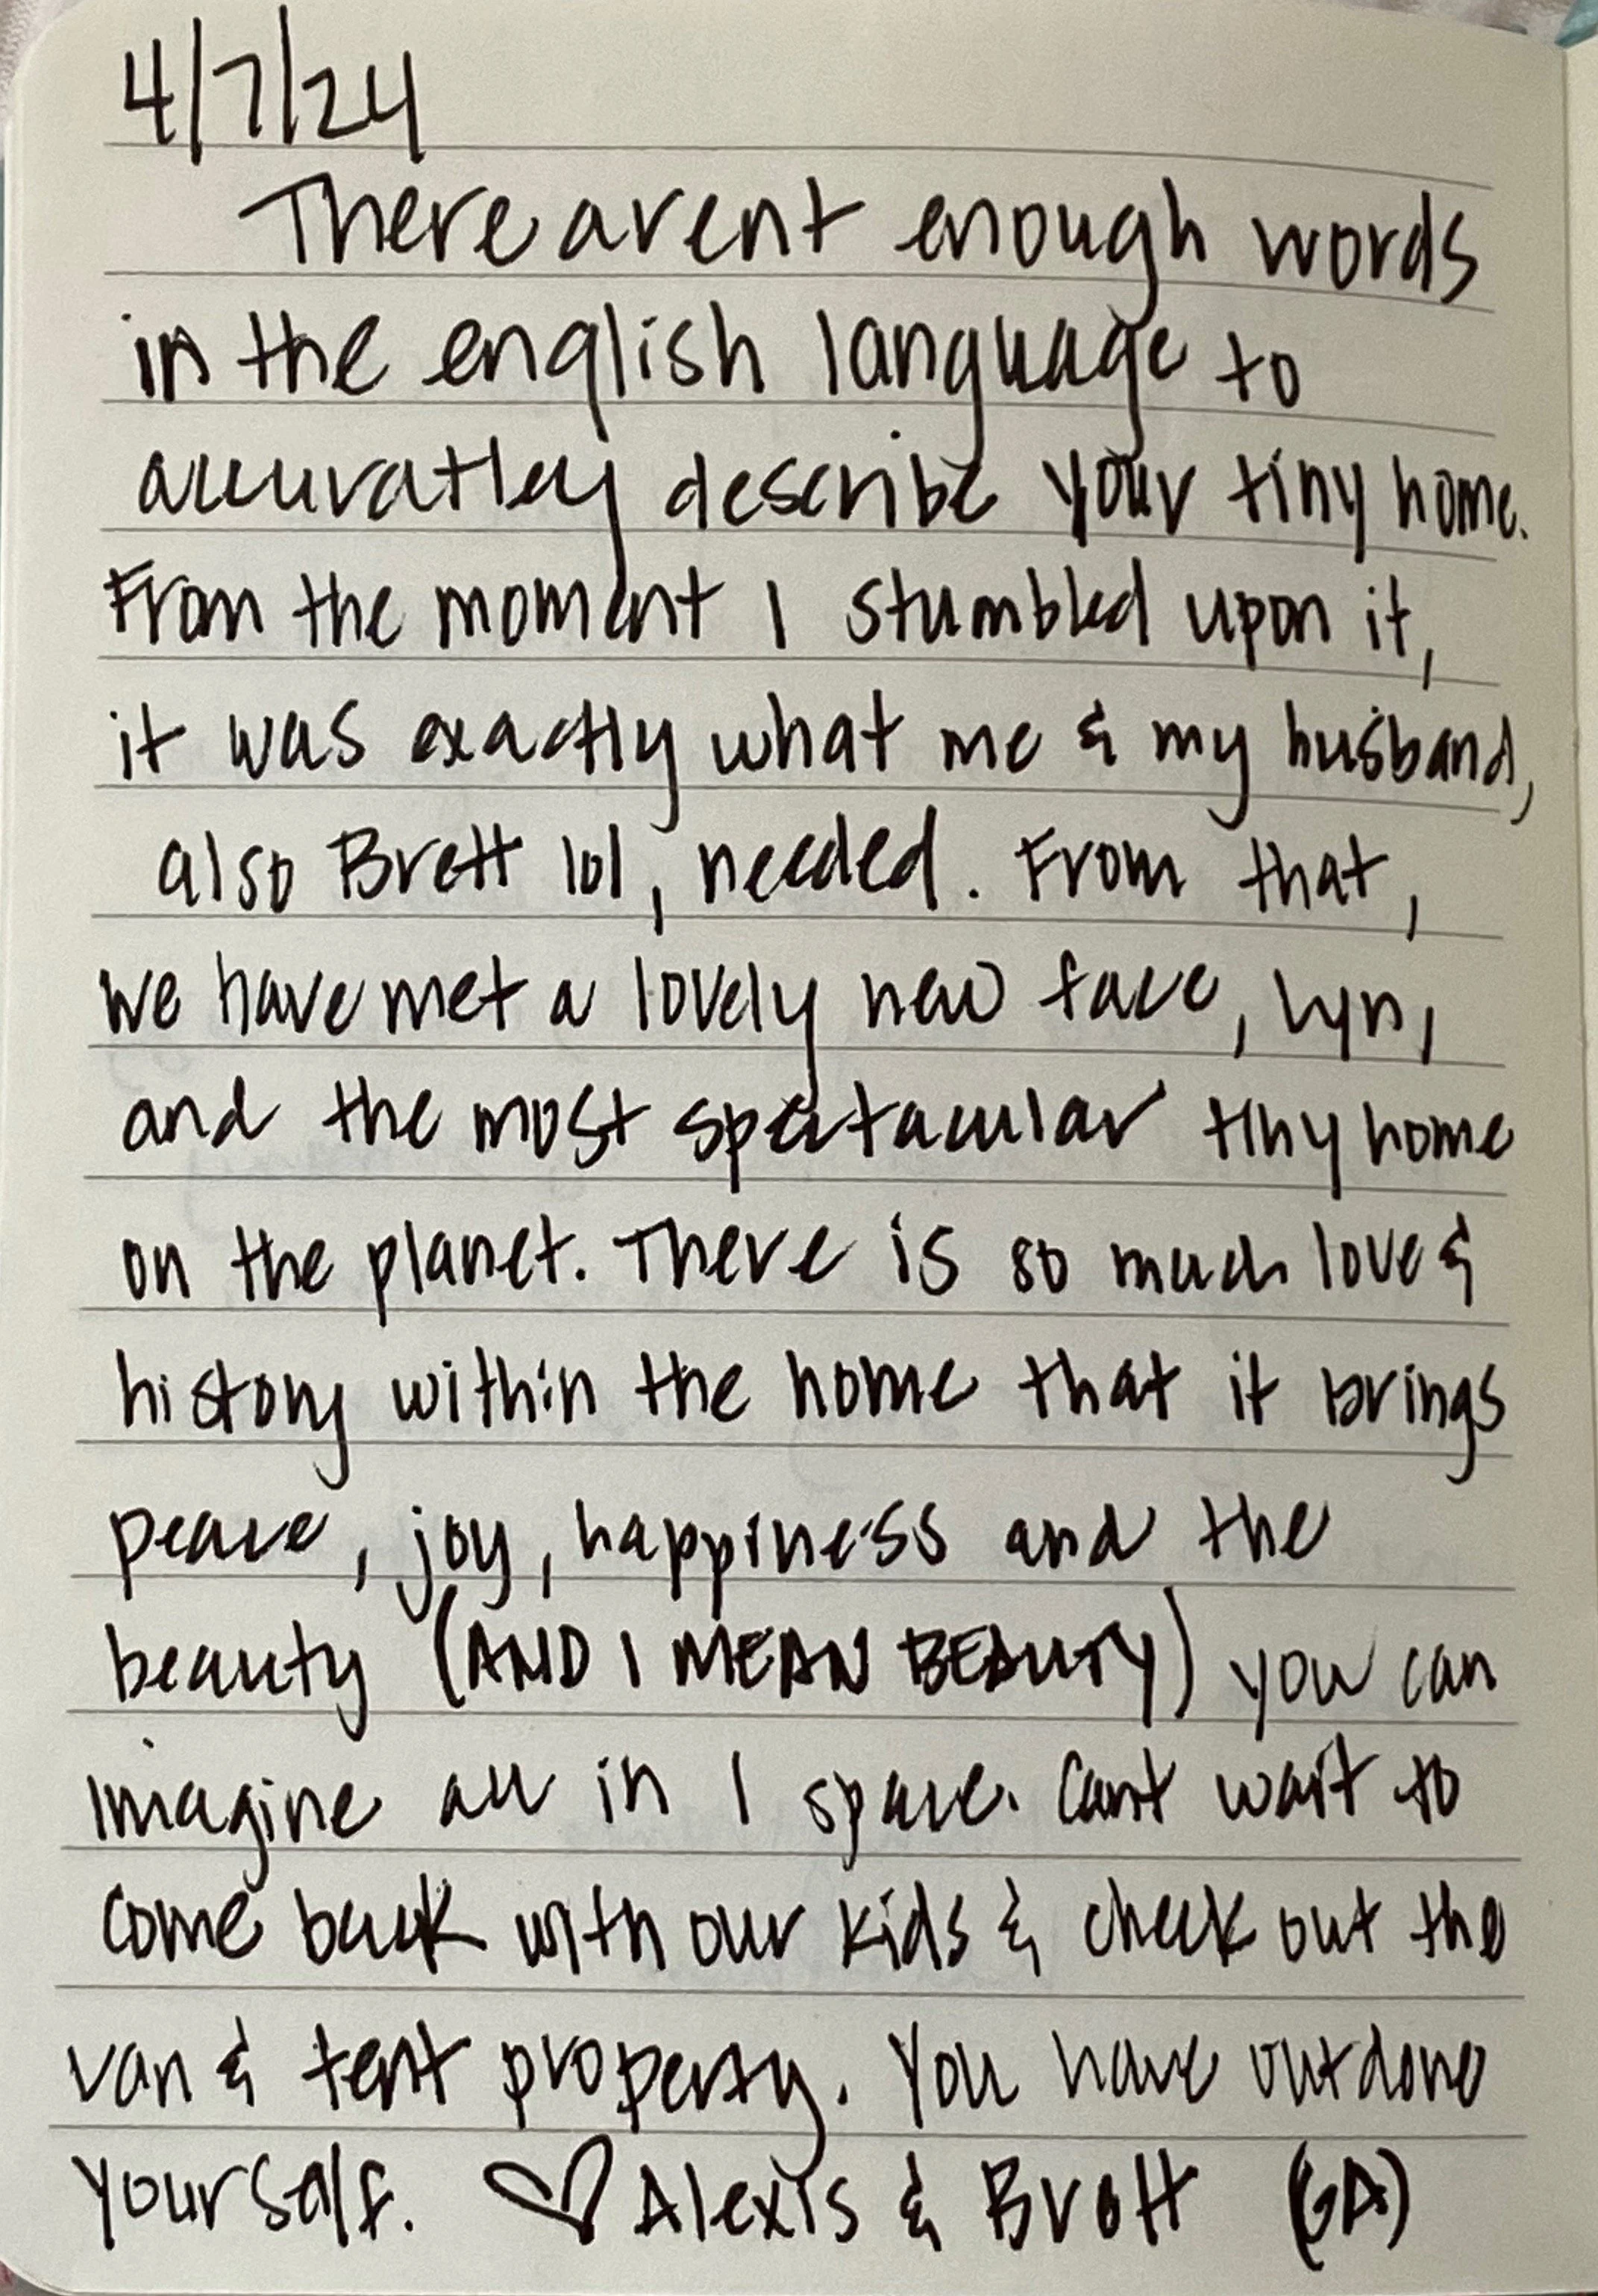 4/7/24
There arent enough words
in the english language to
accuratley describe your tiny home.
From the moment I stumbled upon it,
it was exactly what me & my husband,
also Brett lol, needed. From that,
we have met a lovely new face, Lyn,
and the most spectacular tiny home
on the planet. There is so much love &
history within the home that it brings
peace, joy, happiness and the
beauty (AND I MEAN BEAUTY) you can
imagine all in 1 space. Cant wait to
come back with our kids & check out the
van & tent property. You have outdone
yourself. ♡ Alexis & Brett (GA)